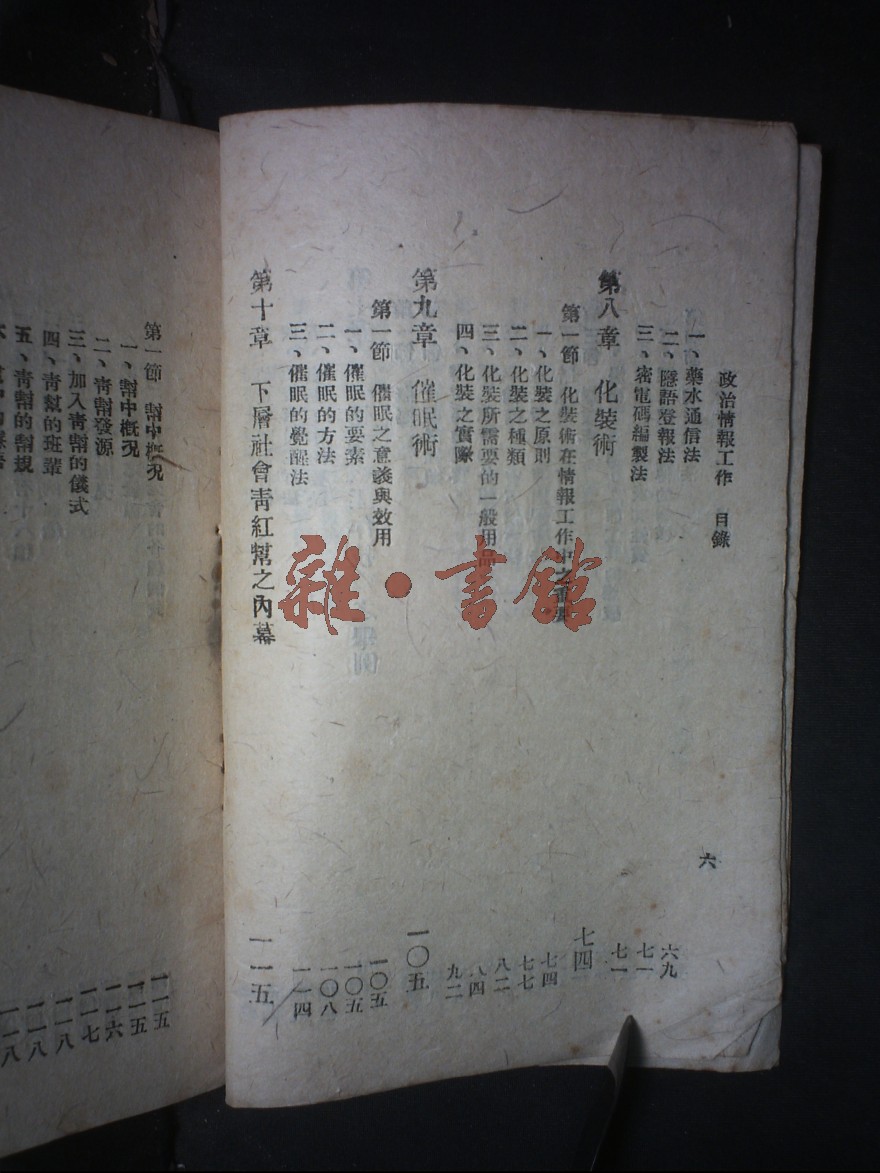 政治情報工作 目錄 六
一、藥水通信法 六九
二、隱語登報法 七一
三、密電碼編製法 七一
第八章 化裝術 七四
第一節 化裝術在情報工作中之重要 七四
一、化裝之原則 七七
二、化裝之種類 八二
三、化裝所需要的一般用品 八四
四、化裝之實際 九二
第九章 催眠術 一〇五
第一節 催眠之意義與效用 一〇五
一、催眠的要素 一〇五
二、催眠的方法 一〇八
三、催眠的覺醒法 一一四
第十章 下層社會青紅幫之內幕 一一五
第一節 幇中概况 一一五
一、幇中概况 一一五
二、青幇發源 一一六
三、加入青幇的儀式 一一七
四、青幫的班輩 一一八
五、青幇的幇規 一一八
一一八
雜·書館